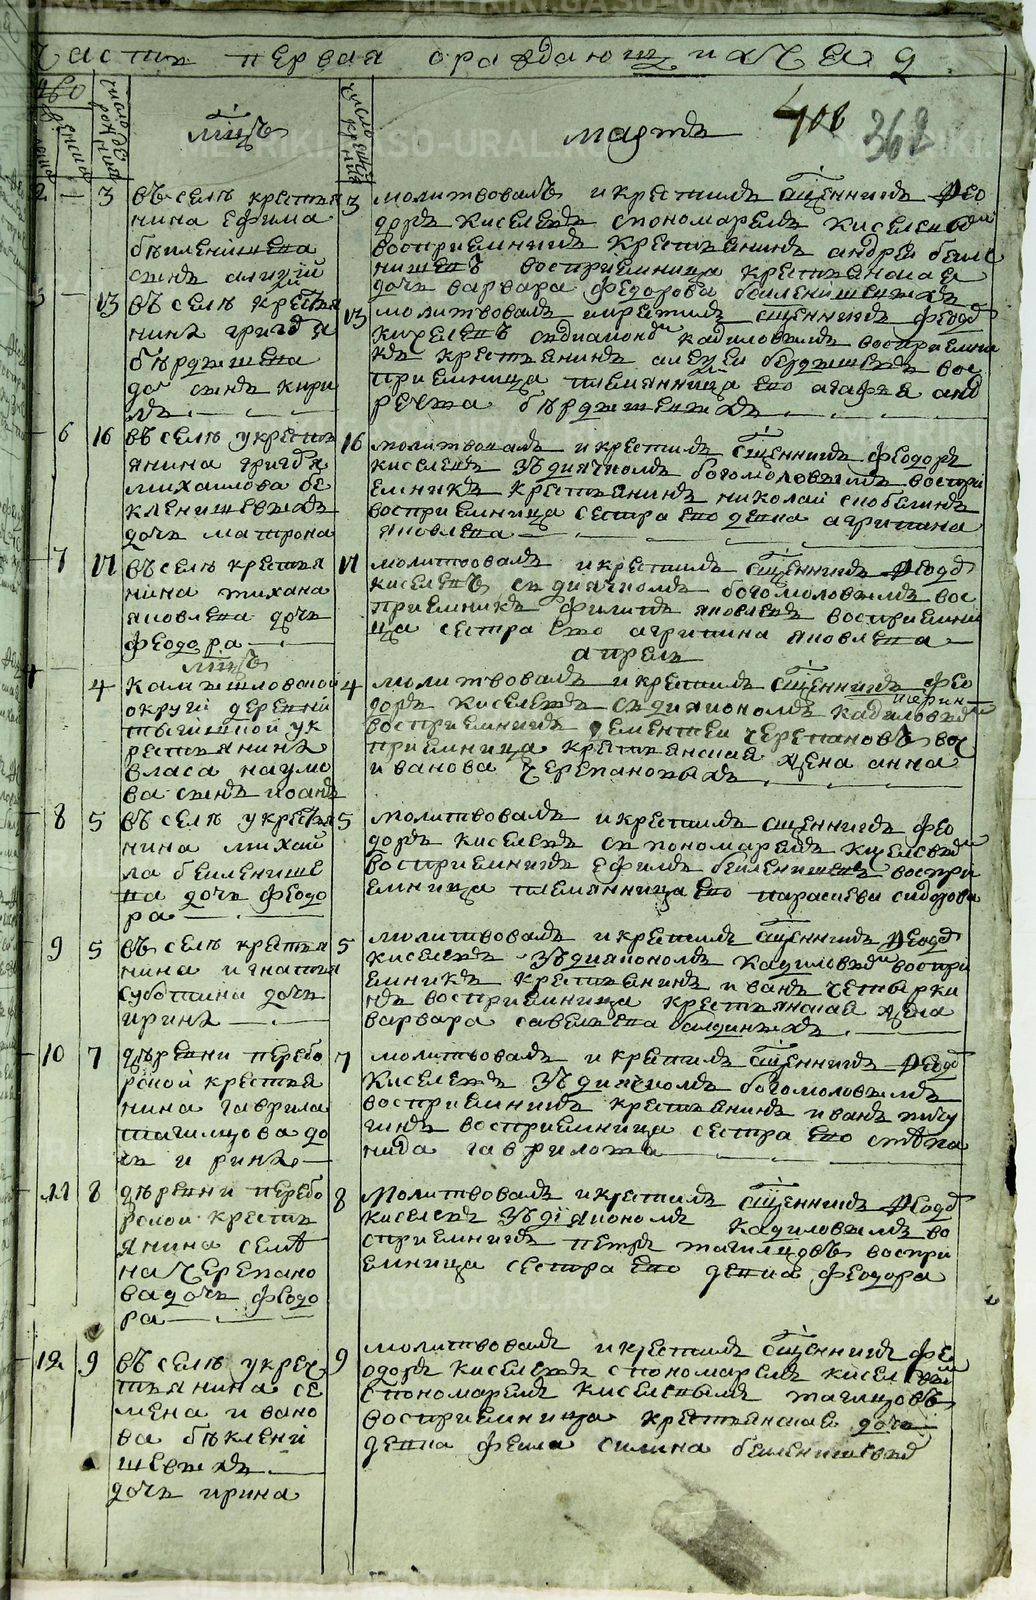 METRIKI.GASO-URAL.RU
Часть первая ораждающихся
мцъ мартъ 408 368
2 3 въ селѣ крестья
нина ефима
бекленищева
сынъ алиѯий
3 молитвовалъ и крестилъ сщенникъ Фео
доръ Киселевъ спономаремъ Киселевы
восприемникъ крестьянинъ андреи бекле
нищевъ восприемница крестьянская
дочь варвара федорова бекленищевыхъ
13 въ селѣ крестья
нина григорья
бердышева
сынъ кири
лъ
13 молитвовалъ икрестилъ сщенникъ Феод
Киселевъ здиакономъ кадиловымъ восприемни
къ крестьянинъ алеѯеи бердышевъ вос
приемница племянница ево агафья анд
реева бердышевыхъ
6 16 въ селѣ у кресть
янина григорья
михаилова бе
кленищевыхъ
дочь матрона
16 молитвовалъ икрестилъ сщенникъ феодоръ
киселевъ здиячкомъ богомоловымъ воспри
емникъ крестьянинъ николаи скобелинъ
восприемница сестра ево девка агрипина
яковлева
7 17 въ селѣ крестья
нина тихана
яковлева дочь
феодора
17 молитвовалъ икрестилъ сщенникъ Феод
киселевъ съ диячкомъ богомоловымъ вос
приемникъ филипъ яковлевъ восприемни
ца сестра ево агрипина яковлева
мцъ апрель
4 4 камышловской
округи деревни
у к
рестьянина
власа наумо
ва сынъ иоанъ
4 молитвовалъ икрестилъ сщенникъ Фео
доръ киселевъ съ диякономъ кадиловым
восприемникъ дементеи черепановъ вос
приемница крестьянская жена анна
иванова черепановыхъ
8 5 въ селѣ у крестья
нина михаи
ла бекленище
ва дочь феодо
ра
5 молитвовалъ икрестилъ сщенникъ фео
доръ киселевъ съ пономаремъ киселевым
восприемникъ ефимъ бекленищевъ воспри
емница племянница ево парасковя сидорова
9 5 въ селѣ крестья
нина игнатья
суботина дочь
ирина
5 молитвовалъ икрестилъ сщенникъ Феод
киселевъ здиякономъ кадиловым воспри
емникъ крестьянинъ иванъ четырки
нъ восприемница крестьянская жена
варвара савельева балдиныхъ
10 7 деревни перебо
рской крестья
нина гаврила
тагилцова до
чь ирина
7 молитвовалъ икрестилъ сщенникъ Феод
Киселевъ здиячкомъ богомоловымъ
восприемникъ крестьянинъ иванъ пичу
гинъ восприемница сестра ево степа
нида гаврилова
11 8 деревни перебо
рской кресть
янина семе
на черепано
ва дочь феодо
ра
8 Молитвовалъ икрестилъ сщенникъ Феод
киселевъ здиякономъ кадиловымъ во
сприемникъ петръ тагилцовъ воспри
емница сестра ево девка феодора
12 9 въ селѣ у крес
тьянина се
мена ивано
ва бѣклени
щевыхъ
дочь ирина
9 молитвовалъ икрестилъ сщенникъ фе
одоръ киселевъ спономаремъ киселевым
спономаремъ киселевымъ тагилцовъ
восприемница крестьянская дочь
девка фекла силина бекленищевыхъ